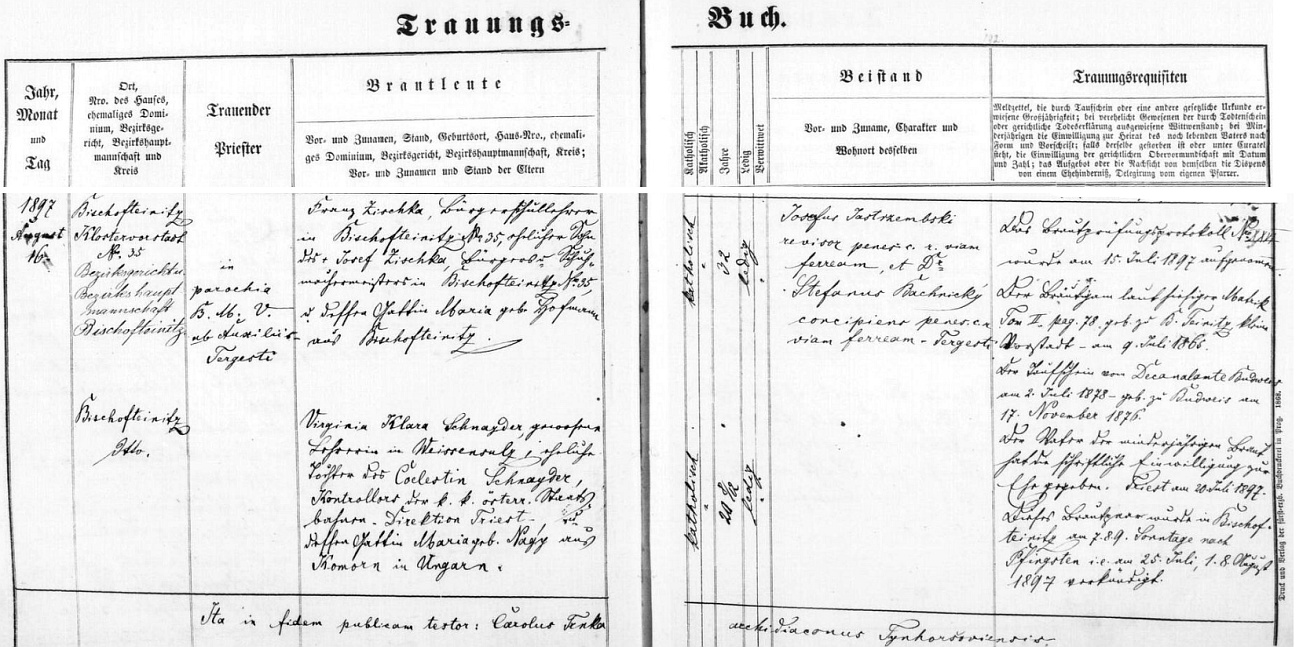 Trauungs-
Buch.
Jahr,
Monat
und
Tag
Ort,
Nro. des Hauses,
ehemaliges Domi-
nium, Bezirksge-
richt, Bezirkshaupt-
mannschaft und
Kreis
Trauender
Priester
Brautleute
Vor- und Zunamen, Stand, Geburtsort, Haus-Nro., ehemali-
ges Dominium, Bezirksgericht, Bezirkshauptmannschaft, Kreis;
Vor- und Zunamen und Stand der Eltern
Katholisch
Akatholisch
Jahre
Ledig
Verwittwet
Beistand
Vor- und Zuname, Charakter und
Wohnort desselben
Trauungsrequisiten
Meldzettel, die durch Taufschein oder eine andere gesetzliche Urkunde er-
wiesene Großjährigkeit; bei verehelicht Gewesenen der durch Todtenschein
oder gerichtliche Todeserklärung ausgewiesene Wittwenstand; bei Min-
derjährigen die Einwilligung zur Heirat des noch lebenden Vaters nach
Form und Vorschrift; falls derselbe gestorben ist oder unter Curatel
steht, die Einwilligung der gerichtlichen Obervormundschaft mit Datum
und Zahl; das Aufgebot oder die Nachsicht von demselben die Dispens
von einem Ehehinderniß, Delegirung vom eigenen Pfarrer.
1897
August
16.
Bischofteinitz
Klostervorstadt
N. 35
Bezirksgericht u.
Bezirkshaupt
mannschaft
Bischofteinitz
in
parochia
B. M. V.
ab Auxilius-
Tergesti
Franz Zischka, Bürgerschullehrer
in Bischofteinitz No 35, ehelicher Sohn
des Josef Zischka, Bürgers u. Schuh-
machermeisters in Bischofteinitz No 35,
u dessen Gattin Maria geb. Hofmann
aus Bischofteinitz.
katholisch
32
ledig
Josefus Jastrzembski
revisor penes c. r. viam
ferream, et Dr.
Stefanus Bachnický
concipiens penes c. r.
viam ferream - Tergesti
Das Brautprüfungsprotokoll
wurde am 15. Juli 1897 aufgenommen
Der Bräutigam laut hiesiger Matrik
Tom II. pag. 78. geb. zu B. Teinitz kleine
Vorstadt - am 9. Juli 1865.
Der Taufschein vom Decanalamte Budweis
am 2. Juli 1878 - geb. zu Budweis am
17. November 1876
Der Vater der minderjährigen Braut
hat die schriftliche Einwilligung zur
Ehe gegeben. Triest am 20 Juli 1897.
Dieses Brautpaar wurde in Bischof-
teinitz am 7. 8. 9. Sonntage nach
Pfingsten i. e. am 25. Juli, 1. 8. August
1897 verkündigt.
Bischofteinitz
Dtto.
Virginia Klara Schnayder, gewesene
Lehrerin in Weissensulz, eheliche
Tochter des Coelestin Schnayder,
Kontrollors der k. k. österr. Staats
bahnen - Direktion Triest -, u.
dessen Gattin Maria geb. Nagy aus
Komorn in Ungarn.
katholisch
20 ½
ledig
Ita in fidem publicam testor: Carolus Tenka
archidiaconus Tynhorsoviensis.
Druck und Verlag der fürst-erzb. Buchdruckerei in Prag. 1868.